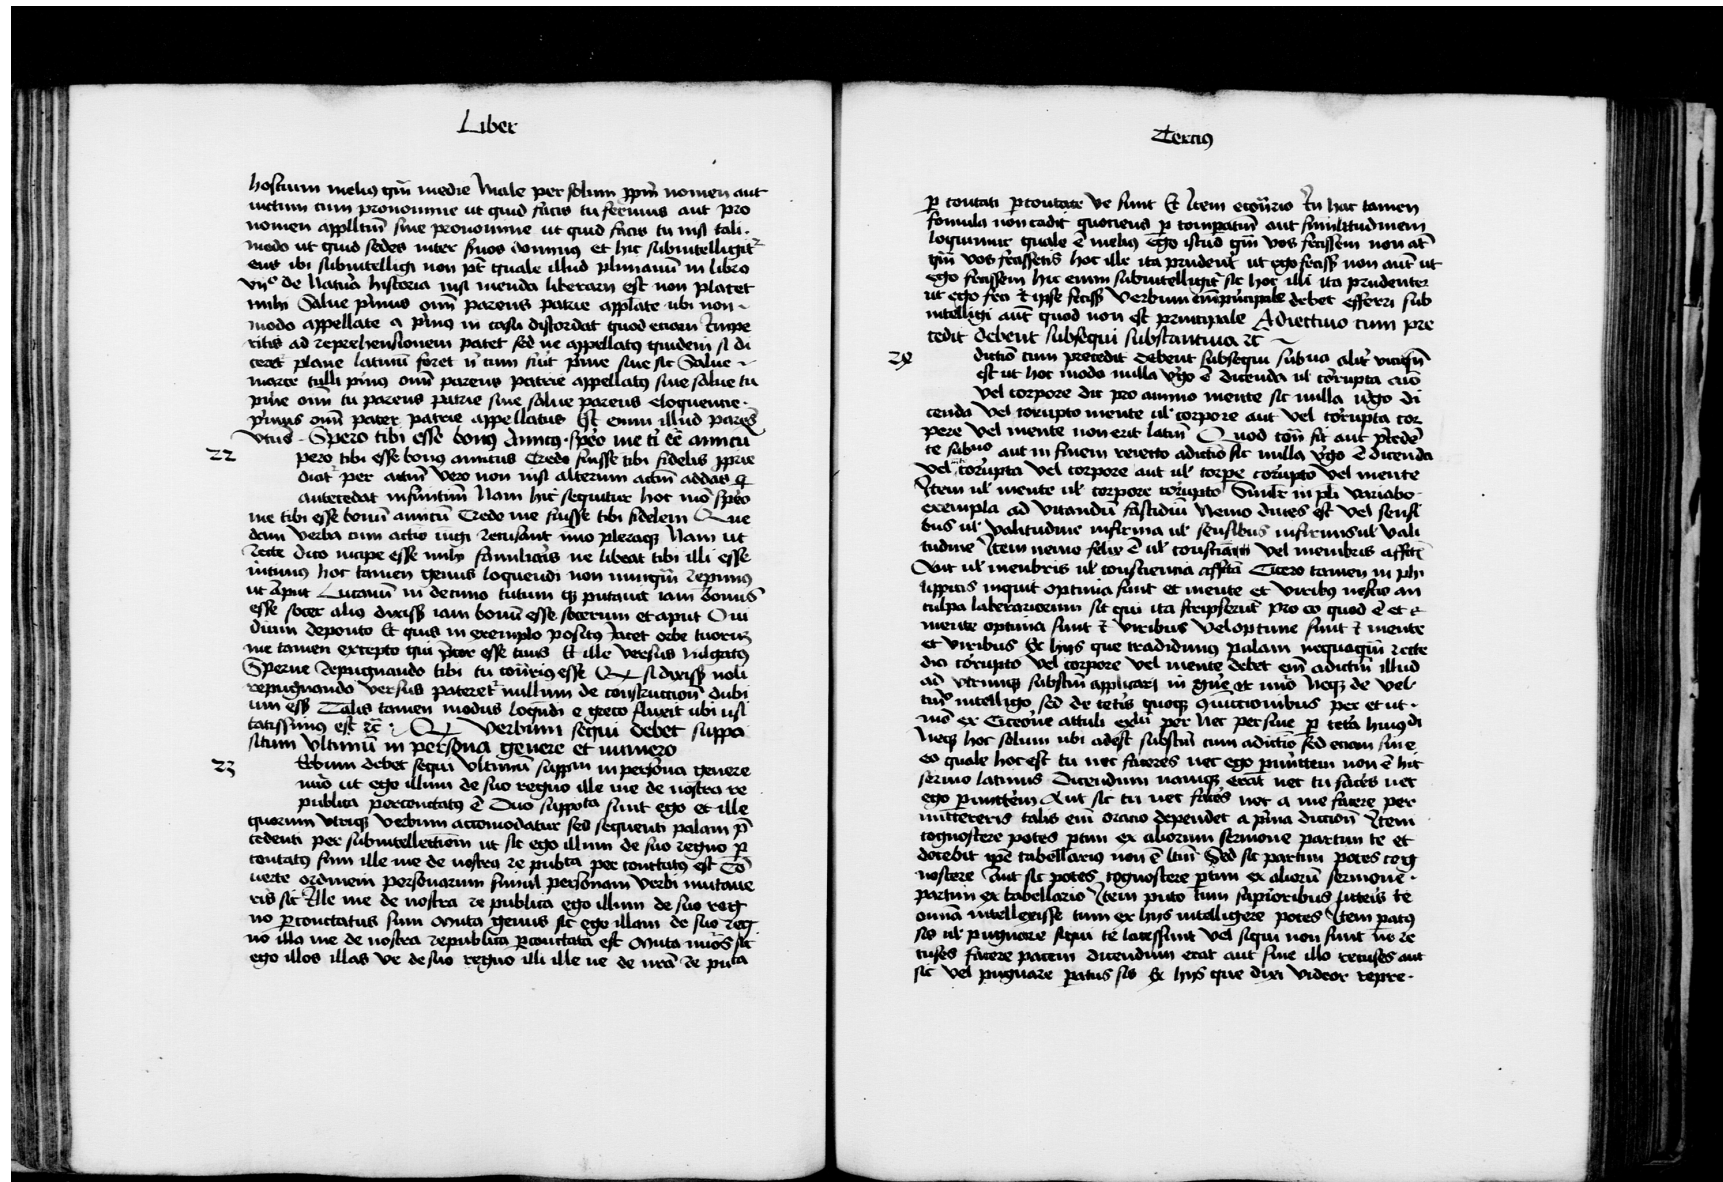 Liber
hostium melius qm̄ medie Male per solum ppm̄ nomen aut
iuctum cum pronomine ut quid facis tu ferenius aut pro
nomen applltm̄ sine pronomine ut quid facis tu nisi tali
modo ut quid sedes inter suos dominus et hic subintelligit
eius ibi subintelligi non pt̄ quale illud plinianū in libro
vii° de Natura historia nisi menda librarii est non placet
mihi Salue primus om̄ parens patrie appllate ubi non
modo appellate a primus in casu discordat quod etiam impe
ritis ad reprehensionem patet sed ne appellatus quidem si di
ceret plane latinū foret n̄ cum sint prime siue sic Salue
marce tulli primus om̄ parens patrie appellatus siue salue tu
prime om̄ tu parens patrie siue salue parens eloquencie
primus om̄ pater patrie appellatus Est enim illud parens
Spero tibi esse bonus Amicus spero me ti eē amicū
22 pero tibi esse bonus amicus Credo fuisse tibi fidelis pprie
dicit per actm̄ vero non nisi alterum actm̄ addas q
antecedat infinitiuū Nam hic sequitur hoc mō spero
me tibi esse bonū amicū Credo me fuisse tibi fidelem Que
dam verba cum actio iūgi recusant imo pleraque Nam ut
recte dico incipe esse mihi familiaris ne libeat tibi illi esse
intimus hoc tamen genus loquendi non nunqm̄ repimus
ut aput Lucanū in decimo tutum q putauit iam bonus
esse socer alius dixiss iam bonū esse socerum et aput Oui
dium deponto Et quis in exemplo positus Iacet orbe tuorum
me tamen excepto qui precor esse tuus Et ille versus vulgatus
Sperne repugnando tibi tu contrius esse Q si dixiss noli
repugnando versus pateret nullum de construction dubi
um ess Talis tamen modus loqndi e greco fluxit ubi usi
tatissimus est rc Q Verbum sequi debet suppo
situm Vltimū in persona genere et numero
23 Erbum debet sequi Vltimū suppm̄ in persona genere
nūo ut ego illum de suo regno ille me de nostra re
publica percontatus ē Duo supposita sunt ego et ille
quorum vtrique verbum accomodatur sed sequenti palam p
cedenti per subintellectiom ut sic ego illum de suo regno p
contatus sum ille me de nostra re publica per contatus est Cō
uerte ordinem personarum simul personam verbi mutaue
ris sic Ille me de nostra re publica ego illum de suo reg
no pcontatus sum Muta genus sic ego illam de suo reg
no illa me de nostra republica pcontata est Muta nūos sic
ego illos illas ve de suo regno illi ille ve de nrā re puta
Tercius
p contati pcontate ve sunt Et Item econtrio In hac tamen
fomula non cadit quociens p compatm̄ aut similitudinem
loquimur quale ē melius Ego istud qm̄ vos fecissem non at
qm̄ vos fecissetis hoc ille ita prudent ut ego feciss non aut ut
ego fecissem hic enim subintelligit sic hoc illi ita prudenter
ut ego feci et ipse feciss Verbum em̄ principale debet efferri sub
intelligi aut quod non est principale Adiectiuo cum pre
cedit debent subsequi substantiua rc
24 dictiō cum precedit debent subsequi subua alit viciosū
est ut hoc modo nulla virgo ē dicenda ul corrupta aīo
vel corpore dic pro animo mente sic nulla virgo di
cenda vel corrupto mente ul corpore aut vel corrupta cor
pere vel mente non erit latin Quod ton sit aut preceden
te subuo aut in finem reiecto adictio sic nulla virgo ē dicenda
vel corrupta vel corpore aut ul corpe corrupto vel mente
Item ul mente ul corpore corrupto Similr in pli variabo
exempla ad vitandū fastidiū Nemo diues est vel sensi
bus ul valitudine infirma ul sensibus infirmis ul vali
tudine Item nemo felix ē ul consciā vel membris affecti
Aut ul membris ul consciencia affecta Cicero tamen in phi
lippicis inquit optima sunt et mente et viribus nescio an
culpa liberariorum sit qui ita scripserut pro eo quod ē et
mente optima sunt et viribus Vel optime sunt et mente
et viribus Ex hiis que tradidimus palam nequaqm̄ recte
dici corrupto vel corpore vel mente debet em̄ adictm̄ illud
ad vtrumque substm̄ applicari in gnē et nūo Neque de vel
tm̄ intelligo sed de cetis quoque Quiuctionibus per et ut
mō ex Cicerone attuli exlū per nec per siue p ceta huiusdi
Neque hoc solum ubi adest substm̄ cum adictio sed etiam sine
eo quale hoc est tu nec faceres nec ego pmittem non ē hic
sermo latinus Dicendum namque erat nec tu faces nec
ego pmittem Aut sic tu nec faces nec a me facere per
mittereris talis em̄ oracio dependet a prima diction Item
cognoscere potes ptm̄ ex aliorum sermone partim te et
docebit ipse tabellarius non ē ltm̄ Sed sic partim potes cog
noscere Aut sic potes cognoscere ptm̄ ex aliorū sermone
partim ex tabellario Item puto tum sapioribus litteis te
omnia intellexisse tum ex hiis intelligere potes Item patus
sis ul pugnare siqui te lacessunt Vel siqui non sunt n̄ re
cuses facere pacem dicendum erat aut sine illo recuses aut
sic vel pugnare patus sis Ex hiis que dixi videor repre